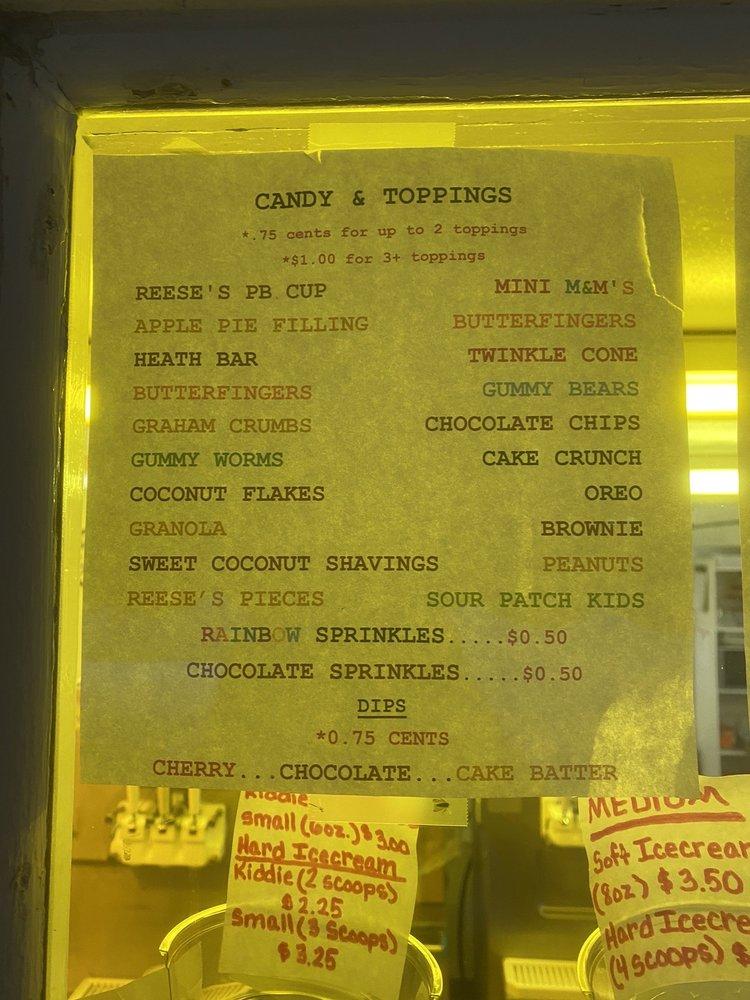 CANDY & TOPPINGS
*.75 cents for up to 2 toppings
*$1.00 for 3+ toppings
REESE'S PB CUP MINI M&M'S
APPLE PIE FILLING BUTTERFINGERS
HEATH BAR TWINKLE CONE
BUTTERFINGERS GUMMY BEARS
GRAHAM CRUMBS CHOCOLATE CHIPS
GUMMY WORMS CAKE CRUNCH
COCONUT FLAKES OREO
GRANOLA BROWNIE
SWEET COCONUT SHAVINGS PEANUTS
REESE’S PIECES SOUR PATCH KIDS
RAINBOW SPRINKLES.....$0.50
CHOCOLATE SPRINKLES.....$0.50
DIPS
*0.75 CENTS
CHERRY...CHOCOLATE...CAKE BATTER
Kiddie
small (6oz.) $3.00
Hard Icecream
Kiddie (2 scoops)
$2.25
Small (3 Scoops)
$3.25
MEDIUM
Soft Icecream
(8oz) $3.50
Hard Icecre
(4 scoops) $